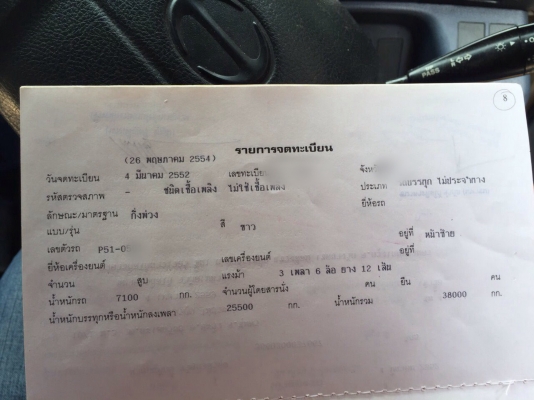 PASS
8
รายการจดทะเบียน
(26 พฤษภาคม 2554)
วันจดทะเบียน 4 มีนาคม 2552 เลขทะเบีย จังห
รหัสตรวจสภาพ - ชนิดเชื้อเพลิง ไม่ใช้เชื้อเพลิง ประเภท ไม่ประจำทาง
ลักษณะ/มาตรฐาน กึ่งพ่วง ยี่ห้อรถ
แบบ/รุ่น สี ขาว
เลขตัวรถ P51-0 อยู่ที่ หน้าซ้าย
ยี่ห้อเครื่องยนต์ เลขเครื่องยนต์ อยู่ที่
จำนวน สูบ แรงม้า 3 เพลา 6 ล้อ ยาง 12 เส้น
น้ำหนักรถ 7100 กก. จำนวนผู้โดยสารนั่ง คน ยืน คน
น้ำหนักบรรทุกหรือน้ำหนักลงเพลา 25500 กก. น้ำหนักรวม 38000 กก.